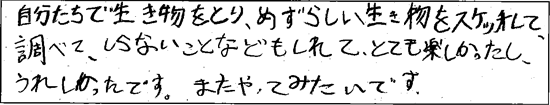 自分たちで生き物をとり、めずらしい生き物をスケッチして、
調べて、しらないことなどもしれて、とても楽しかったし、
うれしかったです。またやってみたいです.